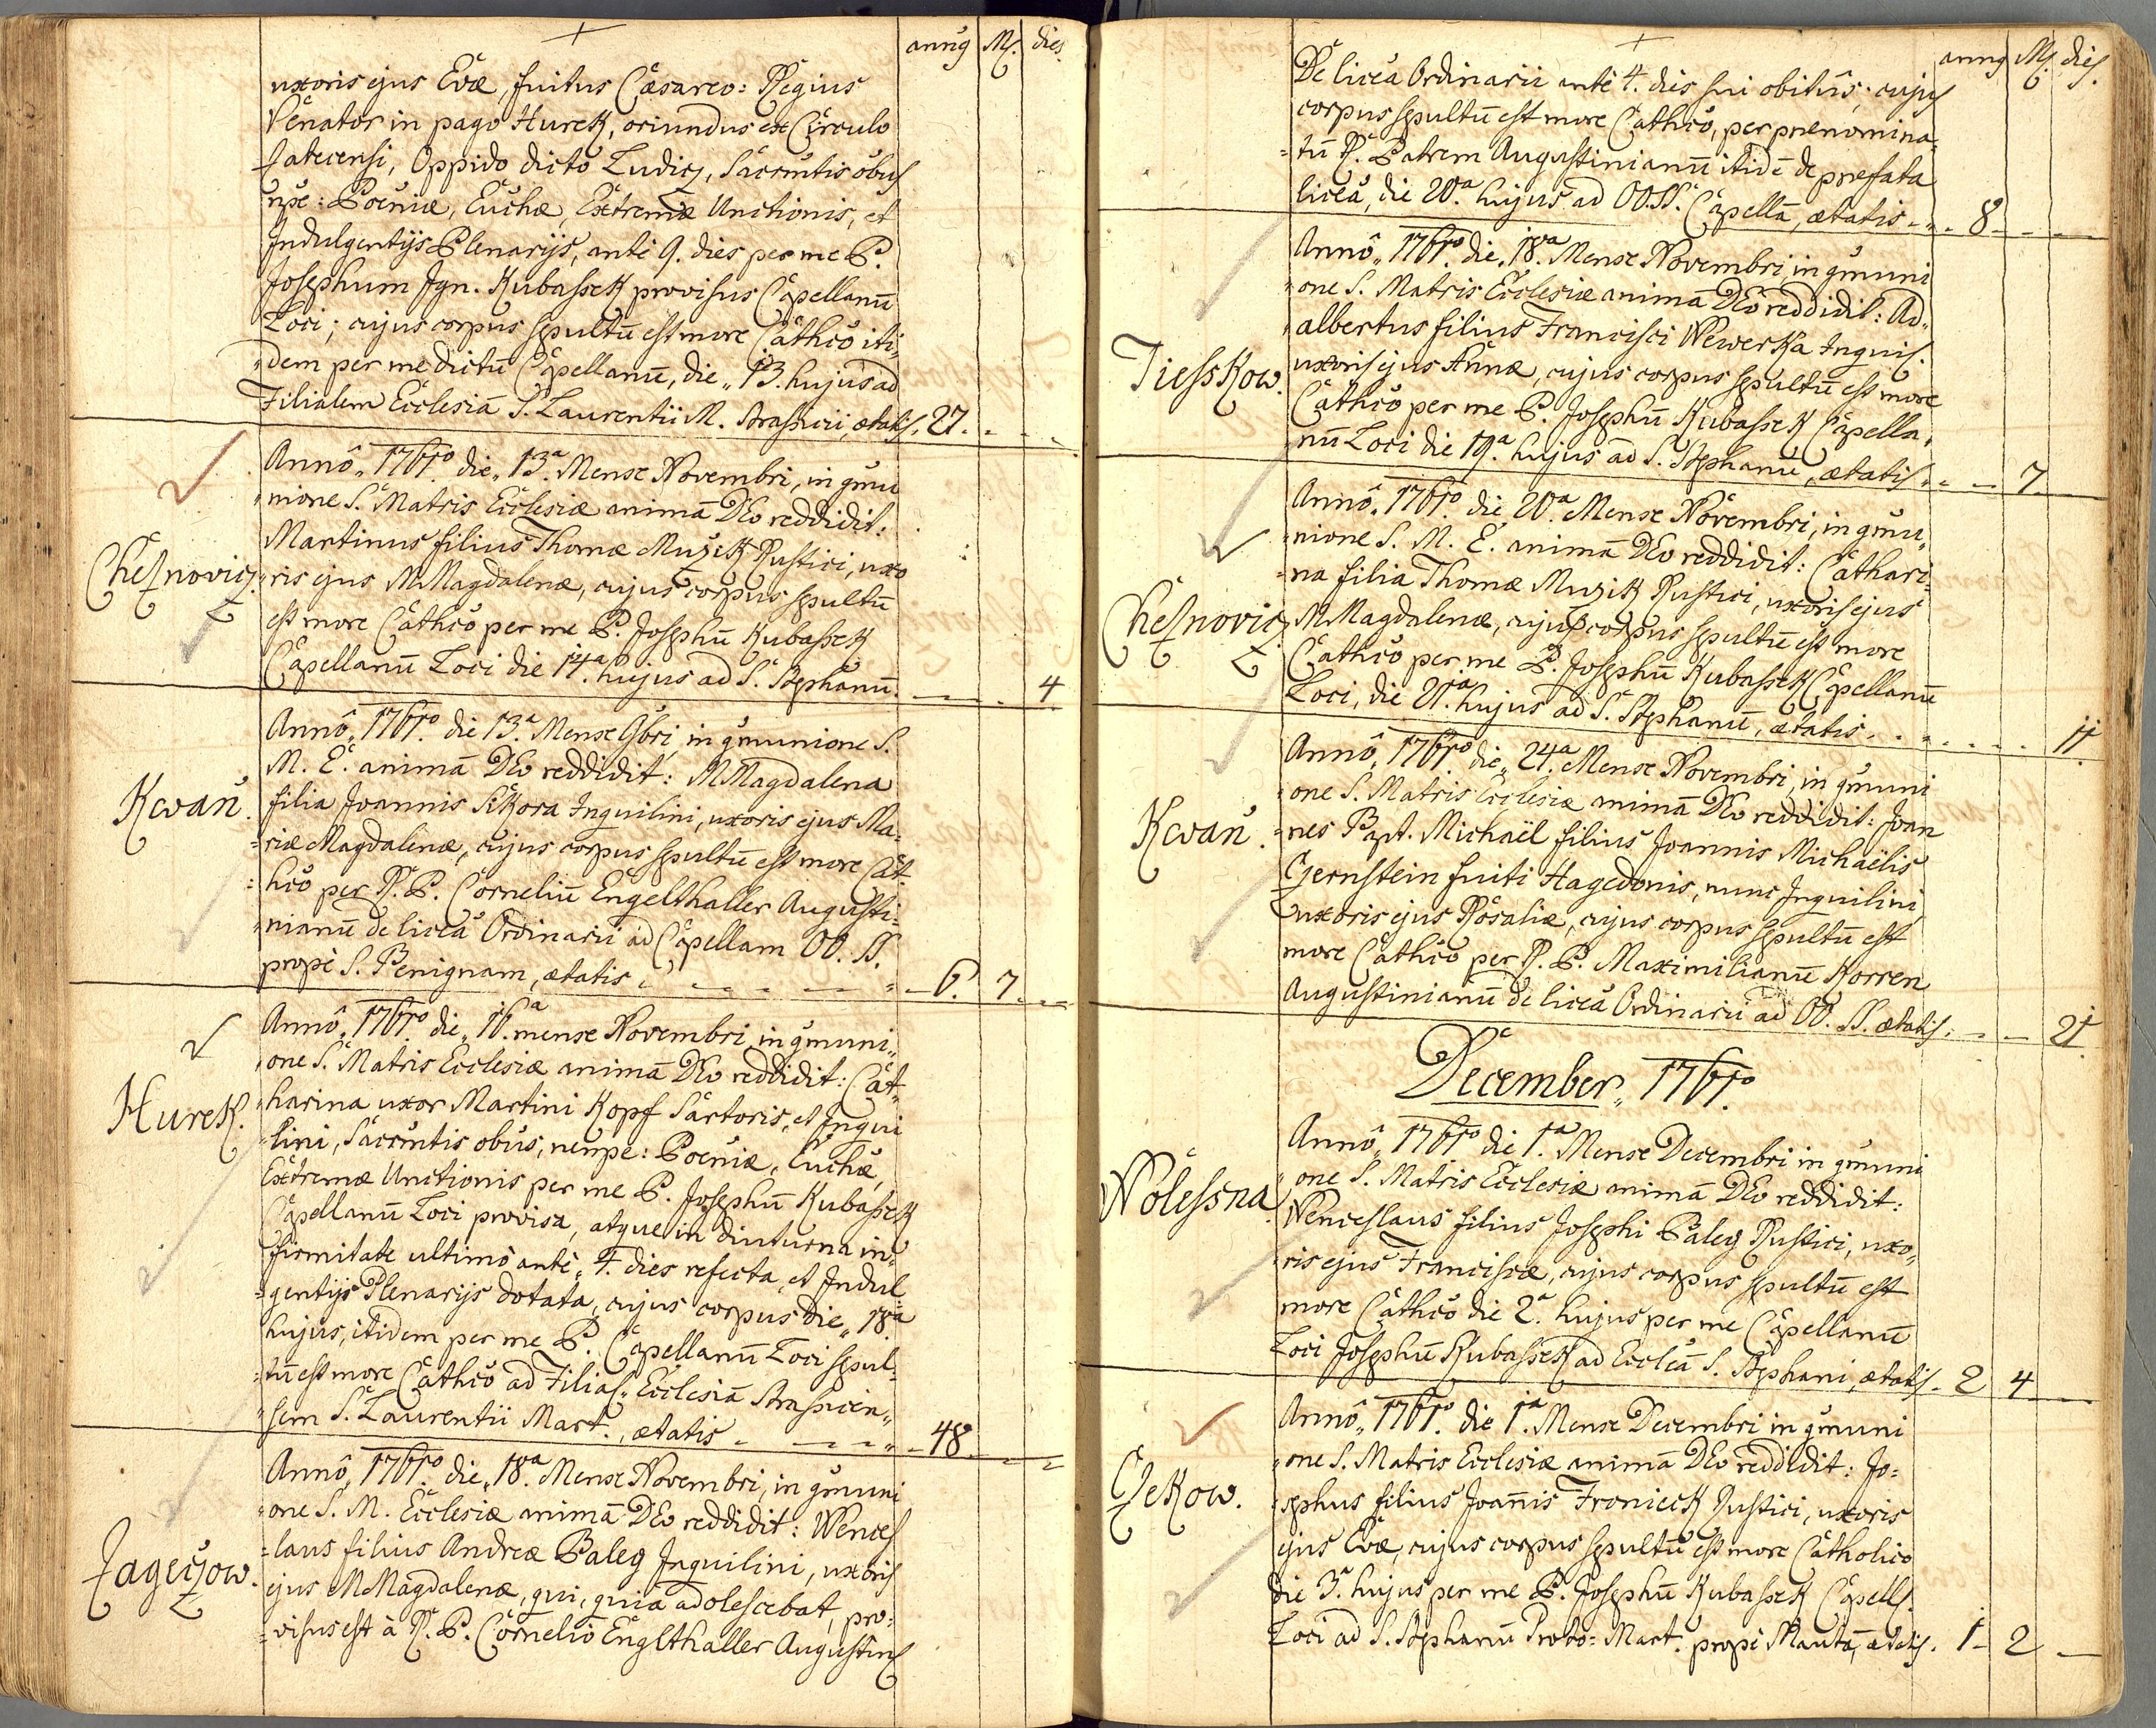 annus M. dies
uxoris ejus Evæ, fuitus Cæsareo: Regius
Venator in pago Hurek, oriundus ex Circulo
Satecensi, Oppido dicto Ludicz, Sacrm̄tis õbus
npe: Pœniæ, Euchæ, Extremæ Unctionis, et
Indulgentijs Plenarijs, antè 9. dies per me P.
Josephum Ign. Kubassek provisus Capellanū
Loci; cujus corpus sepultū est more Cathcō iti„
„dem per me dictū Capellanū, die „ 13. hujus ad
Filialem Ecclesiā S. Laurentii M. Strassicii, ætatis. 27.
Annô „ 1761mo. die „ 13a. Mense Novembri, in cōmu
„nione S. Matris Ecclesiæ animā DEo reddidit:
Martinus filius Thomæ Muzik Rustici, uxo
Chesnovicz. „ris ejus M Magdalenæ, cujus corpus sepultū
est more Cathcō per me P. Josephū Kubassek
Capellanū Loci die 14a. hujus ad S. Stephanū. 4
Annô „ 1761mo. die 13a. Mense 9bri, in cōmunione S.
M. E. animā DEo reddidit: M Magdalena
Kwaň. filia Joannis Sikora Inquilini, uxoris ejus Ma=
=riæ Magdalenæ, cujus corpus sepultū est more Cat=
=hcō per R. P. Corneliū Engelthaller Augusti=
„nianū de liceā Ordinarii ad Capellam OO. SS.
propè S. Benignam, ætatis 6. 7.
Annô „ 1761mo. die „ 16a. mense Novembri, in cōmuni„
„one S. Matris Ecclesiæ animā DEo reddidit: Cat„
Hurek. „harina uxor Martini Kopf Sartoris, et Inqui
„lini, Sacrm̄tis õbus, nempe: Pœniæ, Euchæ,
Extremæ Unctionis per me P. Josephū Kubassek
Capellanū Loci provisa, atque in diuturna in„
„firmitate ultimò antè „ 4. dies refecta, et Indul
„gentijs Plenarijs dotata, cujus corpus die „ 18a
hujus, itidem per me P. Capellanū Loci sepul„
„tū est more Cathcō ad Filial. Ecclesiā Strassicen„
„sem S. Laurentii Mart., ætatis 48.
Annô „ 1761mo. die „ 18a. Mense Novembri, in cōmuni
„one S. M. Ecclesiæ animā DEo reddidit: Wences
Zageczow. =laus filius Andreæ Paleg Inquilini, uxoris
ejus M Magdalenæ, qui, quia adolescebat, pro=
=visus est à R. P. Cornelio Englthaller Augustins
annus M. dies.
De liceā Ordinarii antè 4. dies sui obitûs; cujus
corpus sepultū est more Cathcō, per prænomina=
=tū R. Patrem Augustinianū itidē de præfata
liceā, die 20a. hujus ad OO. SS. Capellā, ætatis 8
Annô „ 1761mo. die „ 18a. Mense Novembri, in cōmuni
„one S. Matris Ecclesiæ animā DEo reddidit: Ad„
„albertus filius Francisci Wewerka Inquis.
Tiesskow. uxoris ejus Annæ, cujus corpus sepultū est more
Cathcō per me P. Josephū Kubassek Capella„
nū Loci die 19a. hujus ad S. Stephanū, ætatis 7
Annô „ 1761mo. die 20a. Mense Novembri, in cōmu„
„nione S. M. E. animā DEo reddidit: Cathari=
=na filia Thomæ Muzik Rustici, uxoris ejus
Chesnovicz. M Magdalenæ, cujus corpus sepultū est more
Cathcō per me P. Josephū Kubassek Capellanū
Loci, die 21a. hujus ad S. Stephanū, ætatis 11.
Annô „ 1761mo die „ 24a. Mense Novembri, in cōmuni
„one S. Matris Ecclesiæ animā DEo reddidit: Joan
Kwaň. =nes Bapt. Michaël filius Joannis Michaëlis
Gernstein fuiti Hagedonis, nunc Inquilini,
uxoris ejus Rosaliæ, cujus corpus sepultū est
more Cathcō per R. P. Maximilianū Korren
Augustinianū de liceā Ordinarii ad OO. SS. ætatis: 21.
December „ 1761mo.
Annô „ 1761mo die 1a. Mense Decembri in cōmuni
Wolessna. „one S. Matris Ecclesiæ animā DEo reddidit:
Wenceslaus filius Josephi Paleg Rustici, uxo„
„ris ejus Franciscæ, cujus corpus sepultū est
more Cathcō die 2a. hujus per me Capellanū
Loci Josephū Kubassek ad Eccleā S. Stephani, ætatis. 2 4
Annô „ 1761mo. die 1a. Mense Decembri in cōmuni
„one S. Matris Ecclesiæ animā DEo reddidit: Jo=
Czekow. =sephus filius Joañis Fronieck Rustici, uxoris
ejus Evæ, cujus corpus sepultū est more Catholico
die 3a. hujus per me P. Josephū Kubassek Capell.
Loci ad S. Stephanū Proto= Mart. propè Mautā, ætatis. 1 2